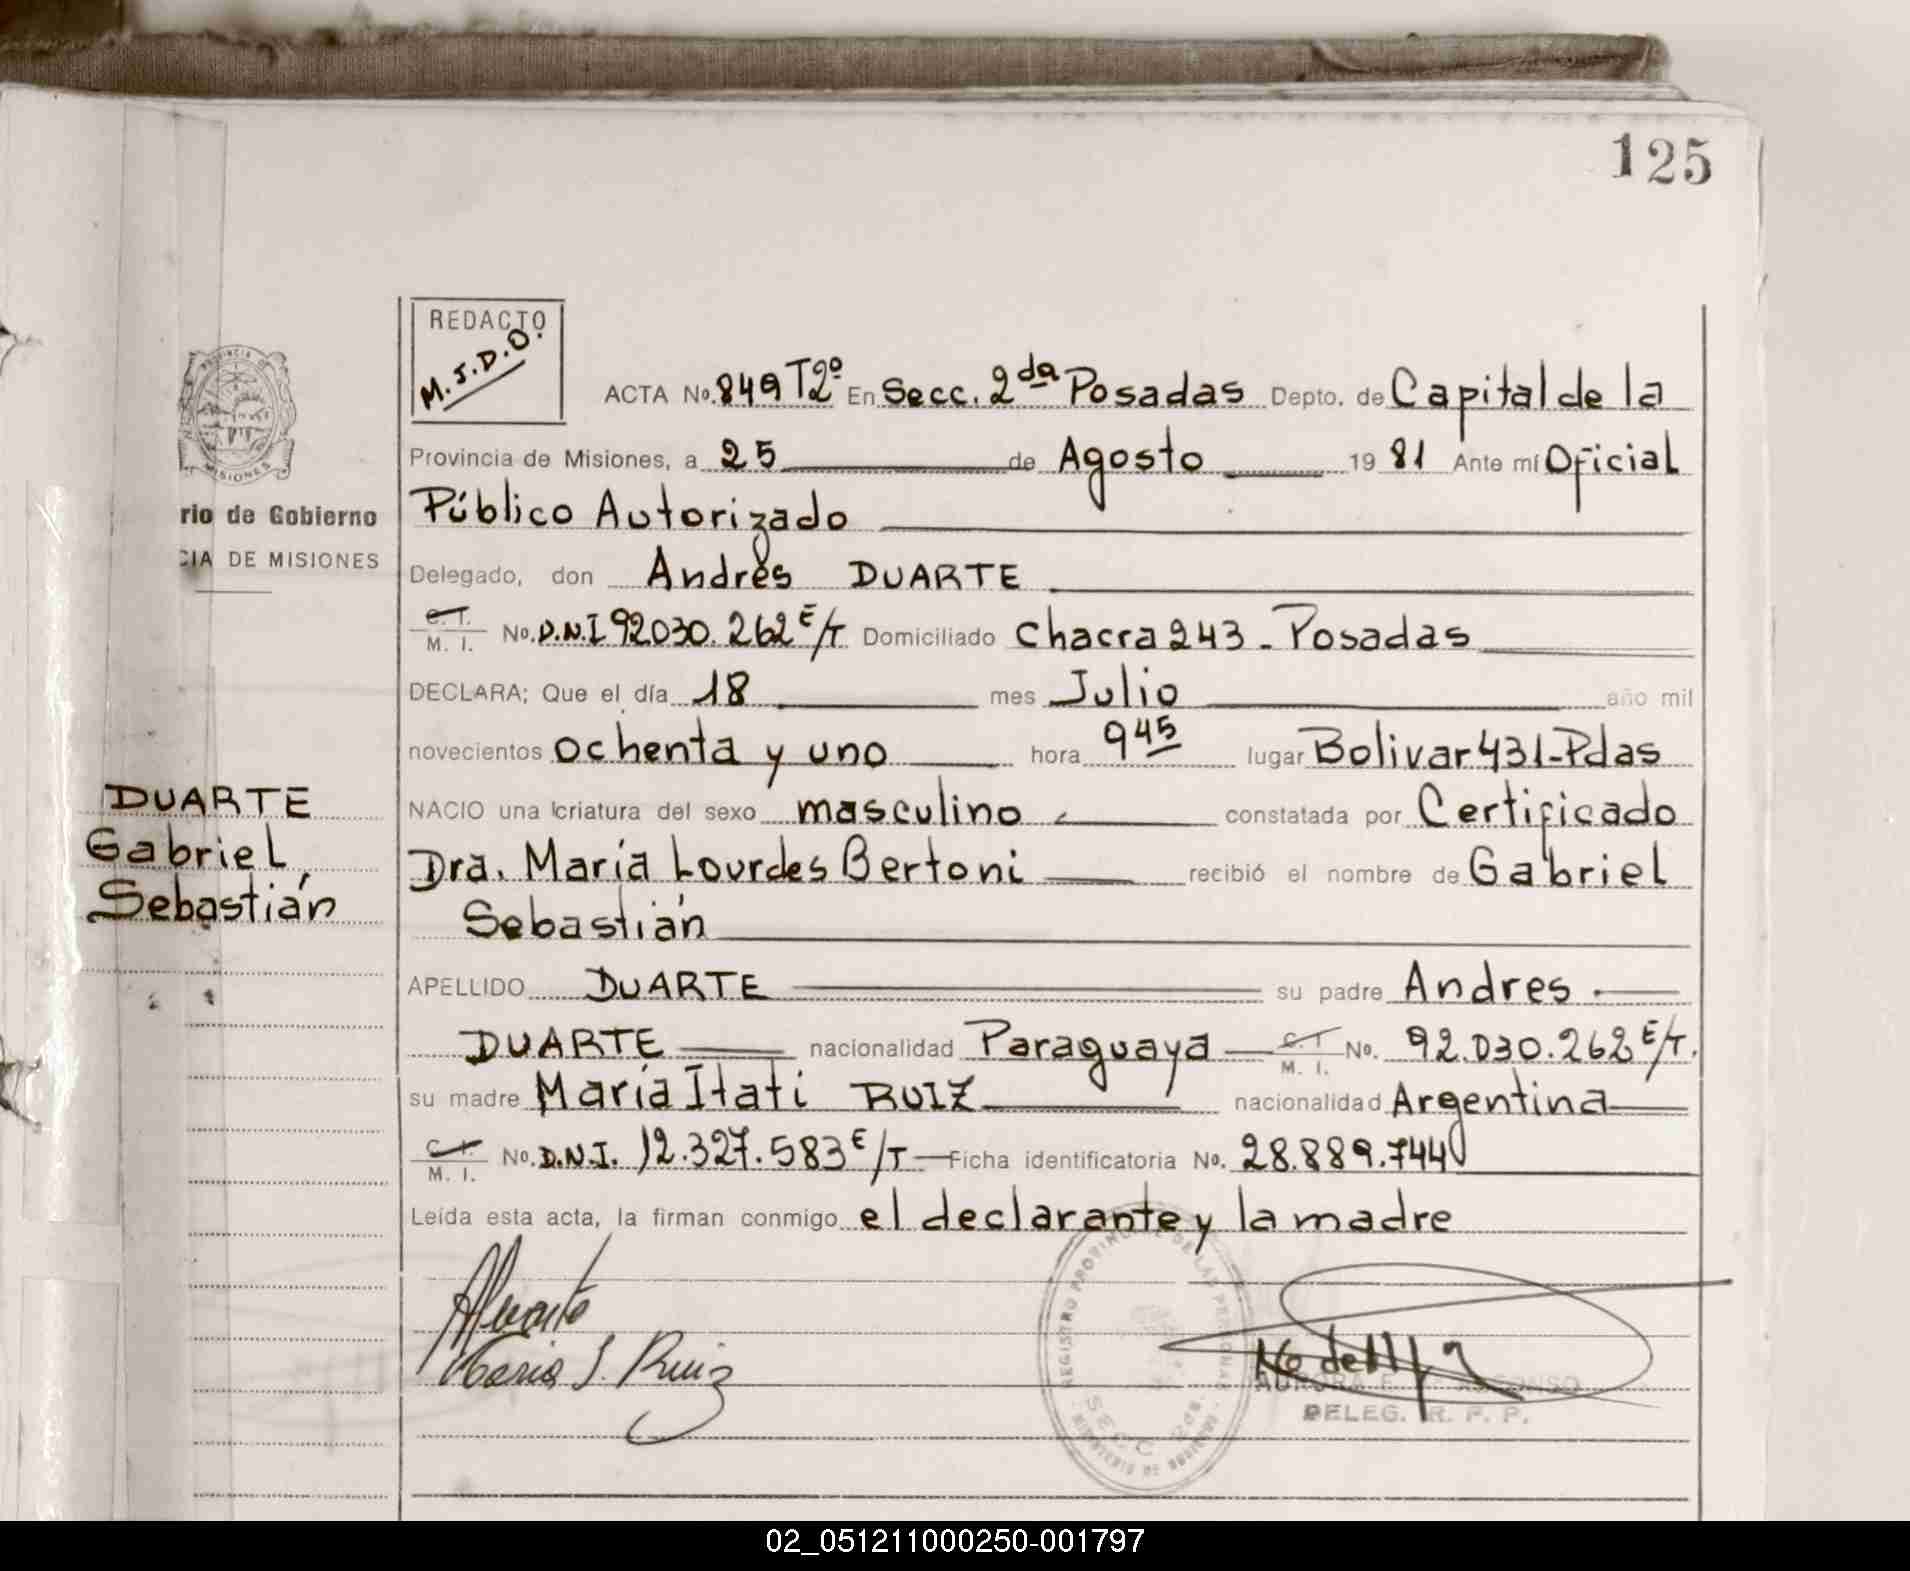 125
REDACTO
M.J.D.O.
ACTA No. 849 T2º En Secc. 2da Posadas Depto. de Capital de la
Provincia de Misiones, a 25 de Agosto 19 81 Ante mí Oficial
Público Autorizado
Delegado, don Andrés DUARTE
C.T. M. I. No. D.N.I 92030.262 E/T Domiciliado Chacra 243 - Posadas
DECLARA; Que el día 18 mes Julio año mil
novecientos ochenta y uno hora 9 45 lugar Bolivar 431-Pdas
NACIO una criatura del sexo masculino constatada por Certificado
Dra. María Lourdes Bertoni recibió el nombre de Gabriel
Sebastián
APELLIDO DUARTE su padre Andres
DUARTE nacionalidad Paraguaya C.T M. I. No. 92.030.262 E/T.
su madre María Itatí RUIZ nacionalidad Argentina
C.T. M. I. No. D.N.I. 12.327.583 E/T Ficha identificatoria No. 28.889.744
Leída esta acta, la firman conmigo el declarante y la madre
Maria I. Ruiz
REGISTRO PROVINCIAL DE LAS PERSONAS
SECC 2da.
DELEG. R. P. P.
PROVINCIA DE MISIONES
rio de Gobierno
CIA DE MISIONES
DUARTE
Gabriel
Sebastián
02_051211000250-001797